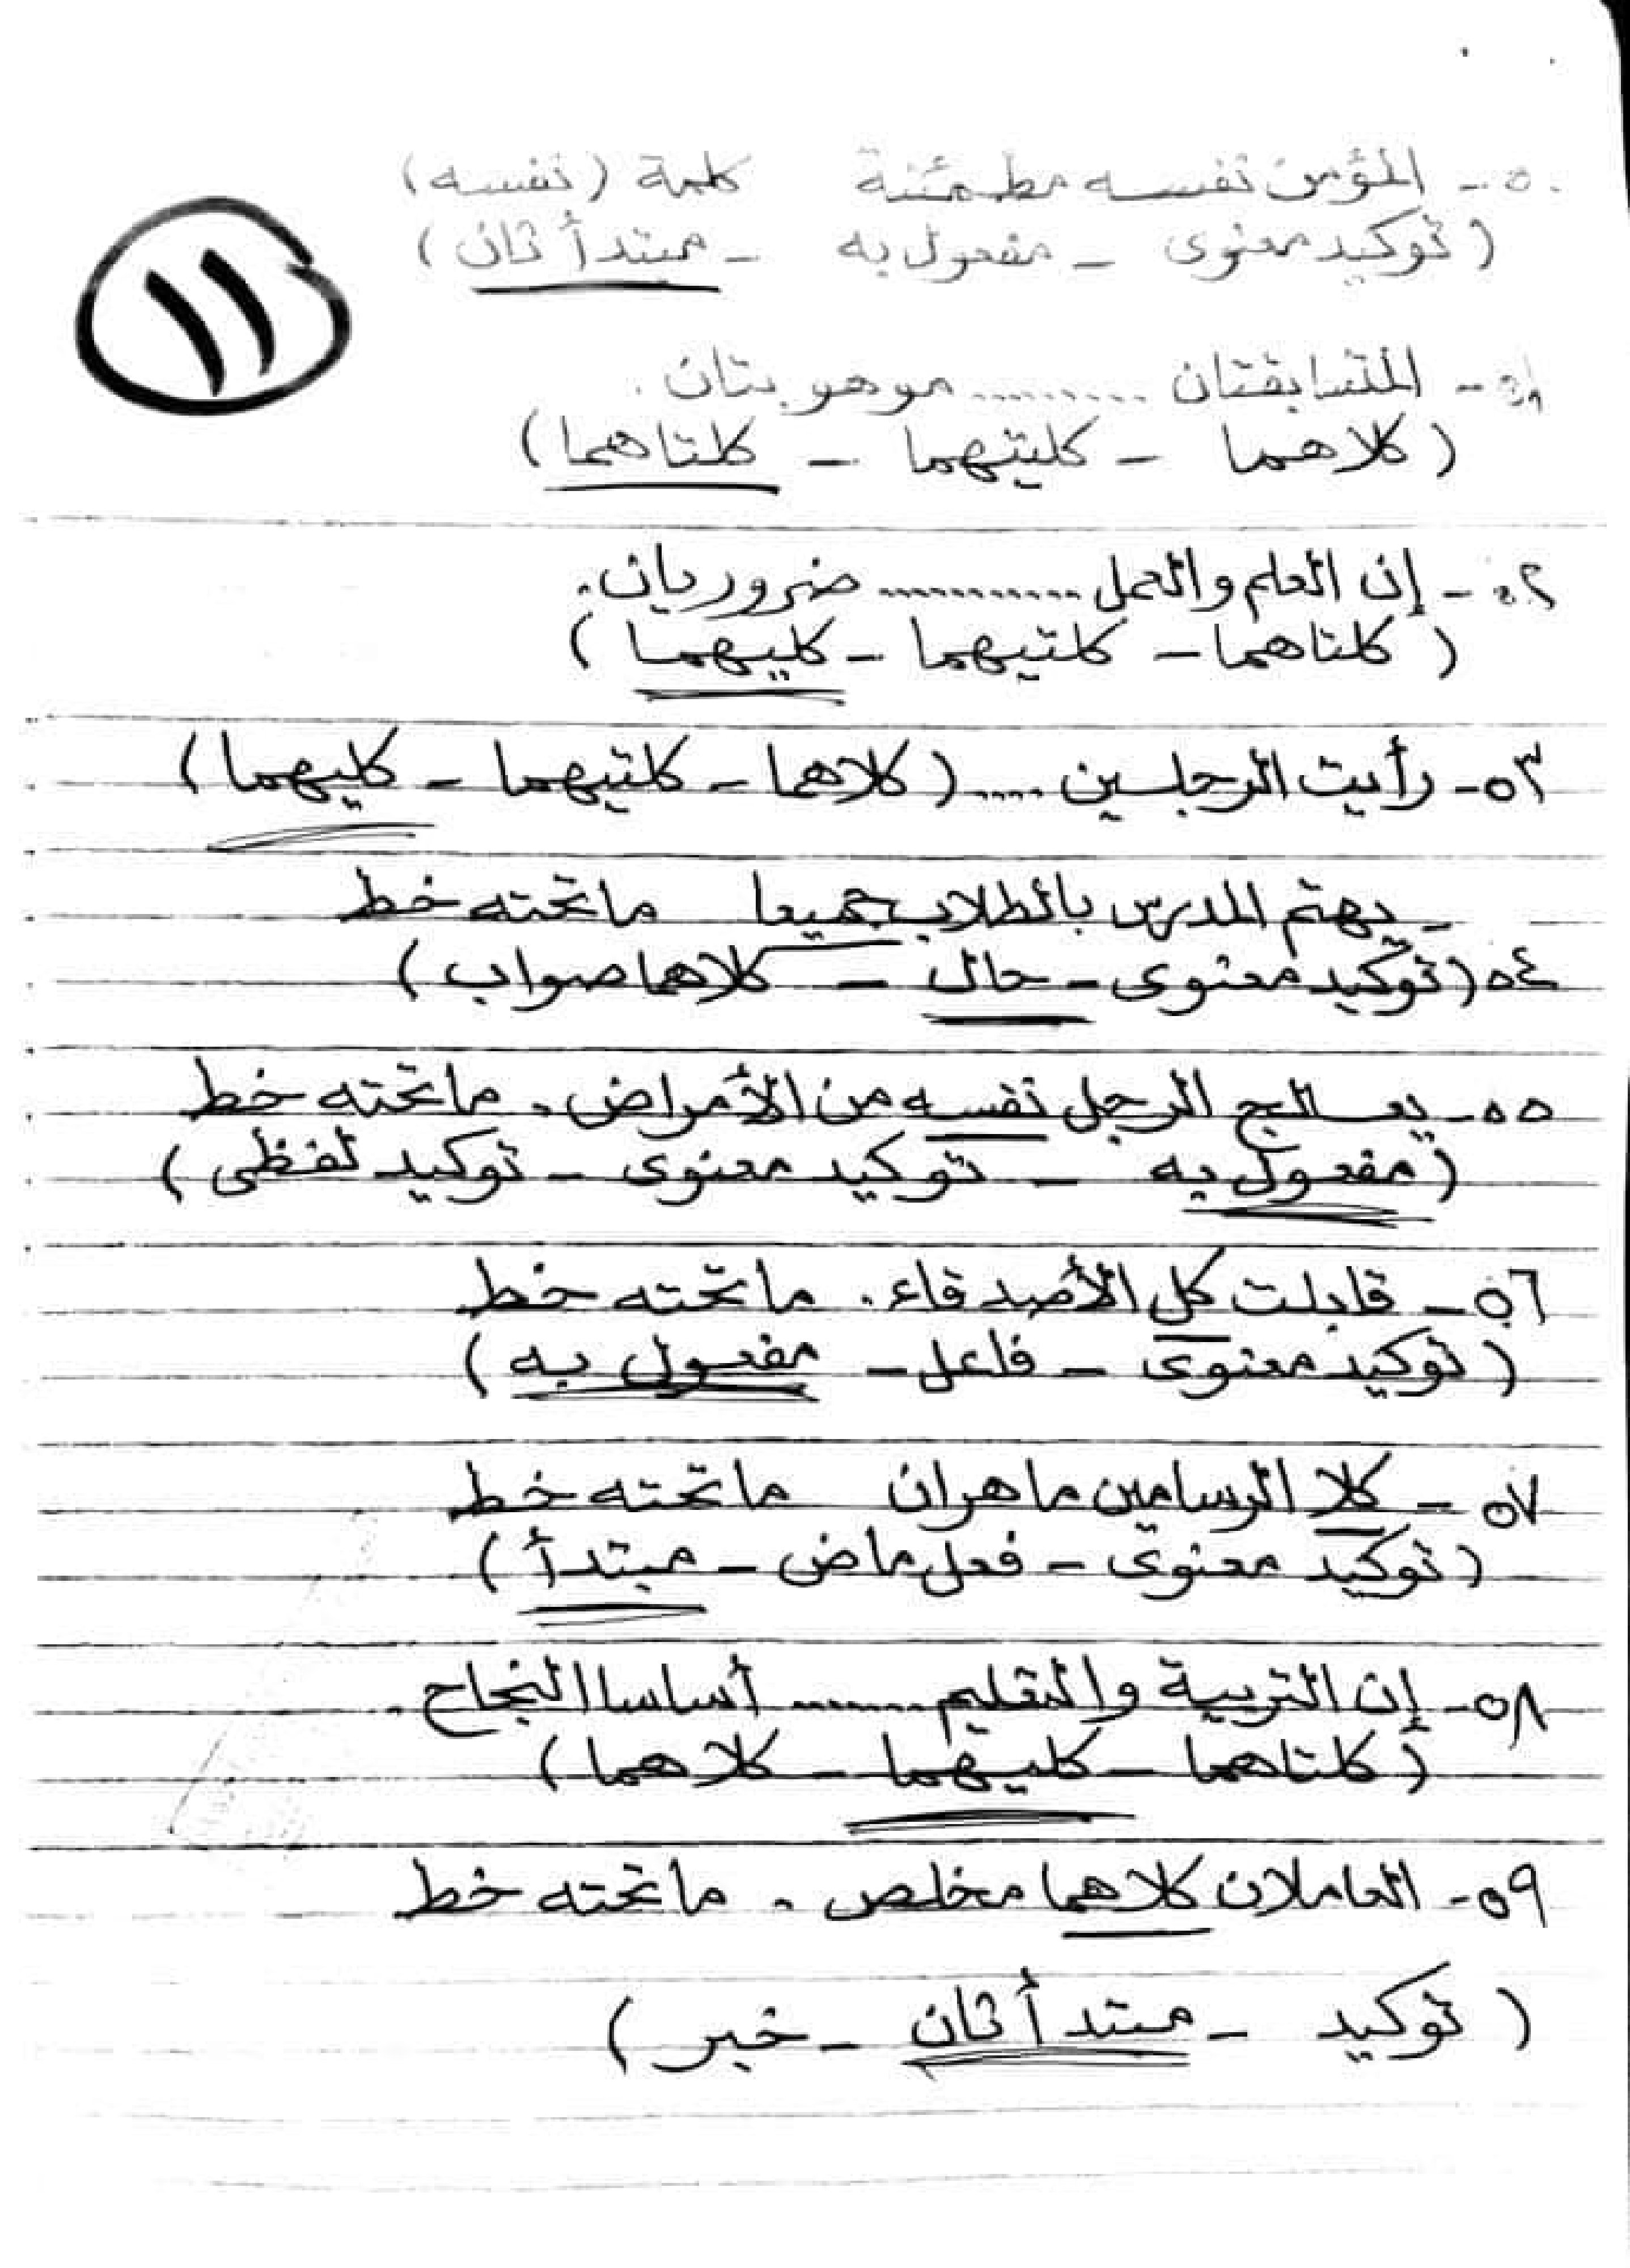 ٥٠- المؤمن نفسه مطمئنة كلمة (نفسه)
(توكيد معنوى - مفعول به - مبتدأ ثان)
١١
٥١- المتسابقتان ......... موهوبتان.
(كلاهما - كليتهما - كلتاهما)
٥٢- إن العلم والعمل ............ ضروريان.
(كلتاهما - كلتيهما - كليهما)
٥٣- رأيت الرجلين ..... (كلاهما - كلتيهما - كليهما)
يهتم المدرس بالطلاب جميعا ماتحته خط
٥٤ (توكيد معنوى - حال - كلاهما صواب)
٥٥- يعالج الرجل نفسه من الأمراض. ماتحته خط
(مفعول به - توكيد معنوى - توكيد لفظى)
٥٦- قابلت كل الأصدقاء. ماتحته خط
(توكيد معنوى - فاعل - مفعول به)
٥٧- كلا الرسامين ماهران ماتحته خط
(توكيد معنوى - فعل ماض - مبتدأ)
٥٨- إن التربية والتعليم ........ أساسا النجاح.
(كلتاهما - كليهما - كلاهما)
٥٩- العاملان كلاهما مخلص. ماتحته خط
(توكيد - مبتدأ ثان - خبر)